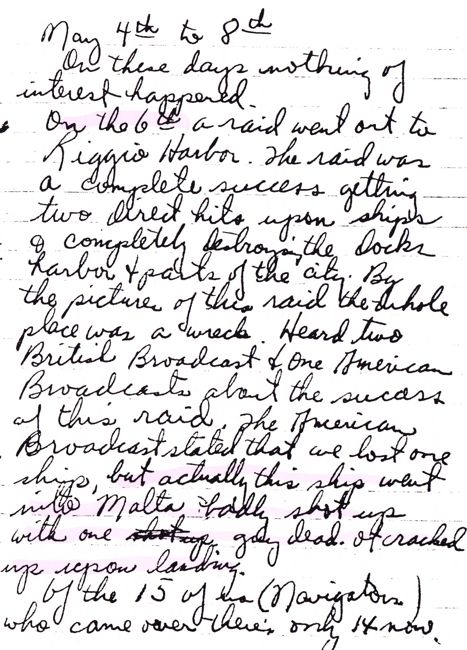 May 4th to 8th
On these days nothing of
interest happened.
On the 6th a raid went out to
Riggio Harbor. The raid was
a complete success getting
two direct hits upon ships
& completely destroying the docks
harbor & parts of the city. By
the pictures of this raid the whole
place was a wreck. Heard two
British Broadcast & one American
Broadcasts about the success
of this raid. The American
Broadcast stated that we lost one
ship, but actually this ship went
into Malta badly shot up
with one shot up guy dead. It cracked
up upon landing.
Of the 15 of us (Navigators)
who came over there's only 14 now.